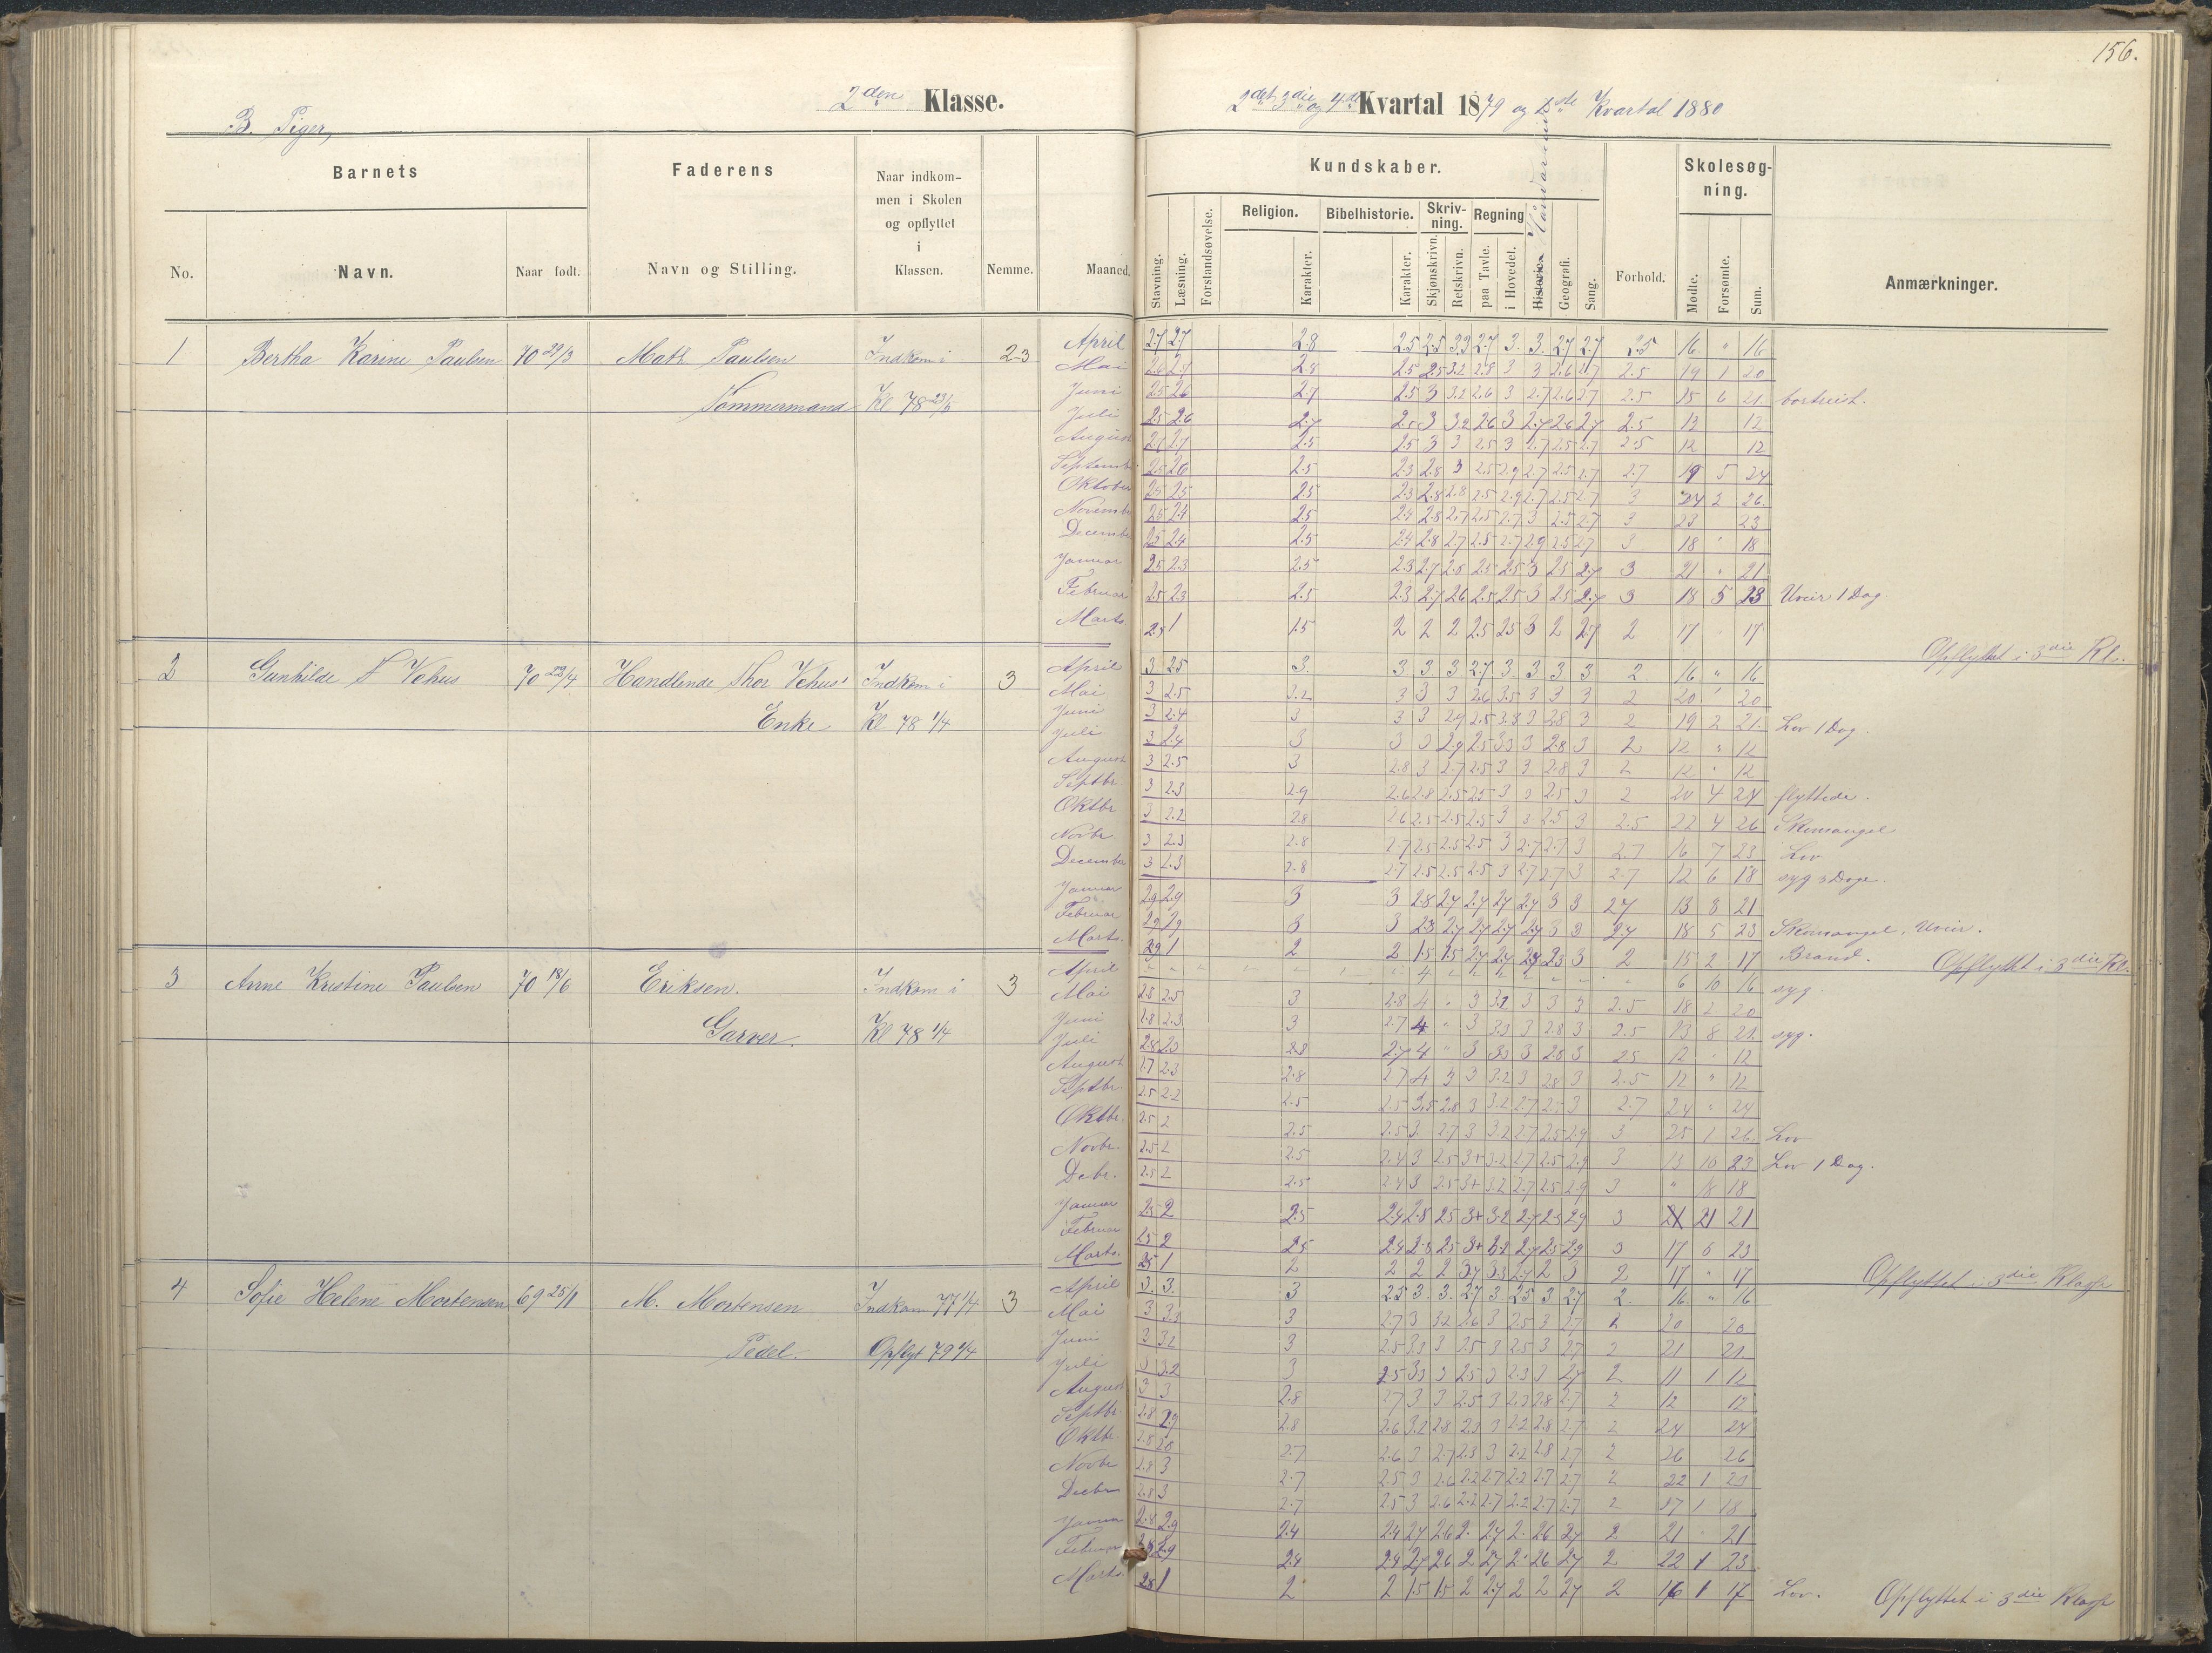 156.
2den Klasse.
2det, 3die og 4de Kvartal 1879 og 1ste Kvartal 1880
B. Piger,
Barnets
Faderens
Naar indkommen i Skolen og opflyttet i Klassen.
Nemme.
Maaned.
No.
Navn.
Naar født.
Navn og Stilling.
Kundskaber.
Stavning.
Læsning.
Forstandsøvelse.
Religion.
Karakter.
Bibelhistorie.
Karakter.
Skrivning.
Skjønskrivn.
Retskrivn.
Regning
paa Tavle.
i Hovedet.
Historie.
Geografi.
Sang.
Forhold.
Skolesøgning.
Mødte.
Forsømte.
Sum.
Anmærkninger.
1 Bertha Karine Paulsen 70 29/3 Math Paulsen Indkom i 2-3
Tømmermand Kl 78 23/5
April 2.7 2.7 2.8 2.5 2.5 3.3 2.7 3. 3. 2.7 2.7 2.5 16. " 16
Mai 2.5 19 1 20
Juni 2.5 2.6 2.7 2.5 3 3.2 2.6 3 2.7 2.6 2.7 2.5 15 6 21 bortreist.
Juli 2.5 2.6 2.7 2.5 3 3.2 2.6 3 2.7 2.6 2.7 2.5 12 12
August 2.5 2.5 3 3 2.5 3 2.7 2.5 2.7 2.5 12 12
Septembr 2.5 2.6 2.5 2.3 2.8 3 2.5 2.9 2.7 2.5 2.7 2.7 19 5 24
Oktober 2.5 2.5 2.5 2.3 2.8 2.8 2.5 2.9 2.7 2.5 2.7 3 24 2 26
Novemb 2.5 2.4 2.5 2.4 2.8 2.7 2.5 2.7 3 2.5 2.7 3 23 23
Decemb 2.5 2.4 2.5 2.4 2.8 2.7 2.8 2.7 2.9 2.5 2.7 3 18 18
Januar 2.5 2.3 2.5 2.3 2.7 2.6 2.5 2.5 3 2.5 2.7 3 21 " 21
Februar 2.5 2.3 2.5 2.3 2.7 2.6 2.5 2.5 3 2.5 2.7 3 18 5 23 Uveir 1 Dag
Marts 2.5 1 1.5 2 2 2 2.5 2.5 3 2 2.7 2 17 17
Opflyttet i 3die Kl.
2 Gunhilde Vehus 70 22/4 Handlende Thor Vehus' Indkom i 3
Enke Kl 78 1/4
April 3 2.5 3. 3 3 3 2.7 3 3 3 3 2 16 " 16
Mai 3 2.5 3.2 3 3 3 2.6 3.5 3 3 3 2 20 20
Juni 3 2.4 3 3 3 2.9 2.5 3.3 3 2.8 3 2 19 2 21. Lov 1 Dag.
Juli 3 2.4 3 3 3 2.9 2.5 3.3 3 2.8 3 2 12 " 12
August 3 2.5 3 2.8 3 2.7 2.5 3 3 2.8 3 2 12 " 12
Septbr. 3 2.3 2.9 2.6 2.8 2.5 2.5 3 3 2.5 3 2 20 4 24 flyttede.
Oktbr 3 2.2 2.8 2.6 2.5 2.5 2.5 3 3 2.5 3 2.5 22 4 26 Skomangel
Novbr. 3 2.3 2.8 2.7 2.5 2.5 2.5 3 2.7 2.7 3 2.7 16 7 23 Lov
December 3 2.3 2.8 2.7 2.5 2.5 2.5 3 2.7 2.7 3 2.7 12 6 18 syg 3 Dage.
Januar 2.9 2.9 3 3 2.8 2.7 2.7 2.7 2.7 3 3 2.7 13 8 21
Februar 2.9 2.9 3 3 2.3 2.7 2.7 2.7 2.7 3 3 2.7 18 5 23 Skomangel, Uveir.
Marts. 2.9 1 2 2 1.5 1.5 2.7 2.7 2.7 2.3 3 2 15 2 17 Brand. Opflyttet i 3die Kl.
3 Anne Kristine Paulsen 70 18/6 Eriksen. Indkom i 3
Garver. Kl 78 1/4
April 4 6 10 16 syg.
Mai 2.5 2.5 3 2.8 4 " 3 3.2 3 3 3 2.5 18 2 20
Juni 1.8 2.3 3 2.7 4 " 3 3.3 3 2.8 3 2.5 13 8 21. syg.
Juli 4 " 3 3.3 3 2.8 3 2.5 12 " 12
August 1.7 2.3 2.8 2.7 4 3 3 3.2 3 2.8 3 2.5 12 " 12
Septbr 2.5 2.2 2.5 2.5 3.5 2.8 3 3.2 2.7 2.5 3 2.7 24 " 24
Oktbr. 2.5 2 2.5 2.5 3. 2.7 3 3.2 2.7 2.5 2.9 3 25 1 26 Lov
Novbr. 2.5 2 2.5 2.4 3 2.5 3+ 3.2 2.7 2.5 2.9 3 13 10 23 Lov 1 Dag.
Debr. 2.5 2 2.5 2.4 3 2.5 3+ 3.2 2.7 2.5 2.9 3 " 18 18
Januar 2.5 2 2.5 2.4 2.8 2.5 3+ 3.2 2.7 2.5 2.9 3 21 21
Februar 2.5 2 2.5 2.4 2.8 2.5 3+ 3.2 2.7 2.5 2.9 3 17 6 23
Marts. 2.5 1 2 2 2 2 2.7 2 3 2 17 " 17 Opflyttet i 3die Klasse
4 Sofie Helene Mortensen 69 25/1 M. Mortensen Indkom 77 1/4 3
Pedel. Opflyt 79 1/4
April 3. 3. 3 2.5 3. 3. 2.7 3 2.5 3 2.7 2. 16. " 16
Mai 3 3.3 3 2.7 3 3.2 2.6 3 2.5 3 2.7 2 20 20
Juni 3 3.2 3 2.5 3.3 3 2.5 3 2.5 3 2.7 2 21 21
Juli 3 3.2 3 2.5 3.3 3 2.5 3 2.3 3 2.7 2 11 1 12
August 3 3 2.8 2.7 3 3 2.5 3 2.3 2.8 2.7 2 12 12
Septbr. 2.8 2.9 2.8 2.6 3.2 2.8 2.3 3 2.2 2.8 2.7 2 24 24
Oktbr. 2.7 2.6 3 2.7 2.3 3 2.2 2.8 2.7 2 26 26
Novbr 2.8 3 2.7 2.5 3 2.6 2.2 2.7 2.2 2.7 2.7 2 22 1 23
Decbr 2.8 3 2.7 2.5 3 2.6 2.2 2.7 2.2 2.7 2.7 2 17 1 18
Januar 2.8 2.9 2.4 2.4 2.7 2.6 2. 2.7 2. 2.6 2.7 2 21 21
Februar 2.9 2.4 2.4 2.7 2.6 2 2.7 2 2.6 2.7 2 22 1 23
Marts. 2.8 1 2 2 1.5 1.5 2 2.7 2 2 2.7 2 16 1 17 Lov. Opflyttet i 3die Klasse